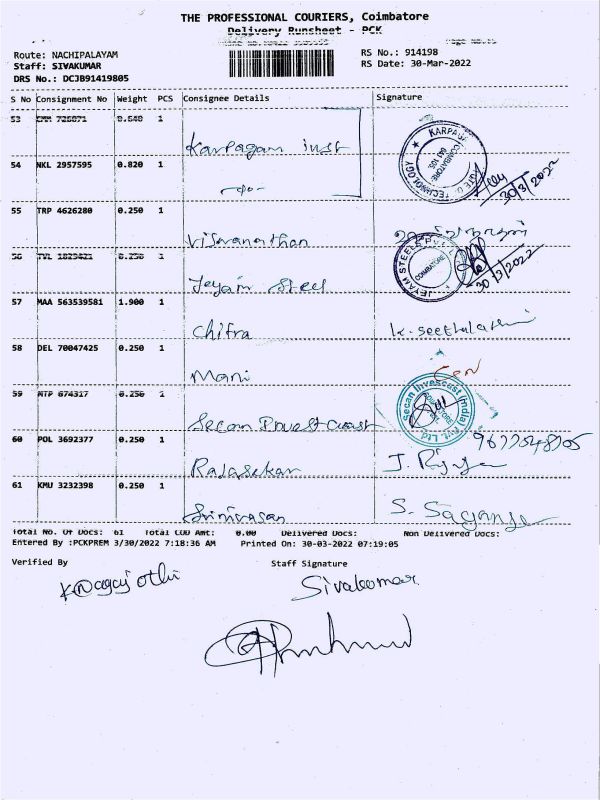 THE PROFESSIONAL COURIERS, Coimbatore
Delivery Runsheet - PCK
Route: NACHIPALAYAM
RS No.: 914198
Staff: SIVAKUMAR
RS Date: 30-Mar-2022
DRS No.: DCJB91419805
S No Consignment No Weight PCS Consignee Details Signature
53 1 Karpagam inst
54 NKL 2957595 0.820 1 -do-
KARPAGA
COIMBATORE
641 105
TECHNOLOGY
30/3/2022
55 TRP 4626280 0.250 1 Viswanathan
56 TVL 1829421 0.250 1 Jeyam Steel
JEYAM STEELS PVT
COIMBATORE
30/3/2022
57 MAA 563539581 1.900 1 Chitra K. Seethalakshmi
58 DEL 70047425 0.250 1 Mani
59 MTP 674317 0.250 1 Secan Invest Coast
Secan Invescast (India) Pvt. Ltd.
60 POL 3692377 0.250 1 Rajasekar
61 KMU 3232398 0.250 1 Srinivasan
Total No. Of Docs: 61 Total COD Amt: 0.00 Delivered Docs: Non Delivered Docs:
Entered By :PCKPREM 3/30/2022 7:18:36 AM Printed On: 30-03-2022 07:19:05
Verified By Staff Signature
Sivakumar